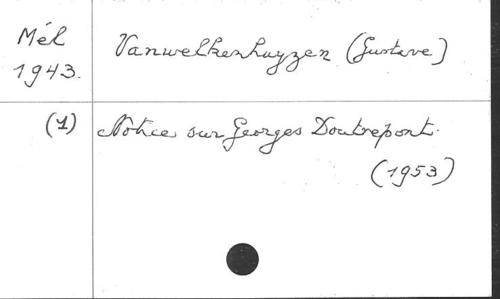 Mél
1943.
Vanwelkenhuyzen (Gustave)
(1)
Notice sur Georges Doutrepont.
(1953)